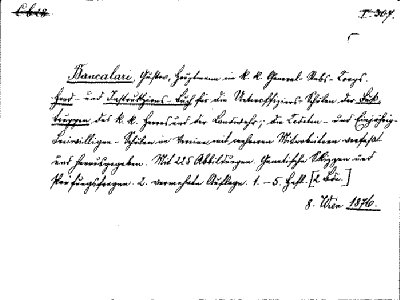 I-307.
Bancalari, Gustav, Hauptmann im k. k. General-Stabs-Corps.
Hand- und Instruktions-Buch für die Unteroffiziers-Schulen der Fuß-
truppen des k. k. Heeres und der Landwehr; die Kadeten- und Einjährig-
Freiwilligen-Schulen im Verein mit mehreren Mitarbeitern verfaßt
und herausgegeben. Mit 225 Abbildungen. Genetische Skizzen und
Prüfungsfragen. 2. vermehrte Auflage. 1.-5. Heft. [2 Bde.]
8. Wien 1876.